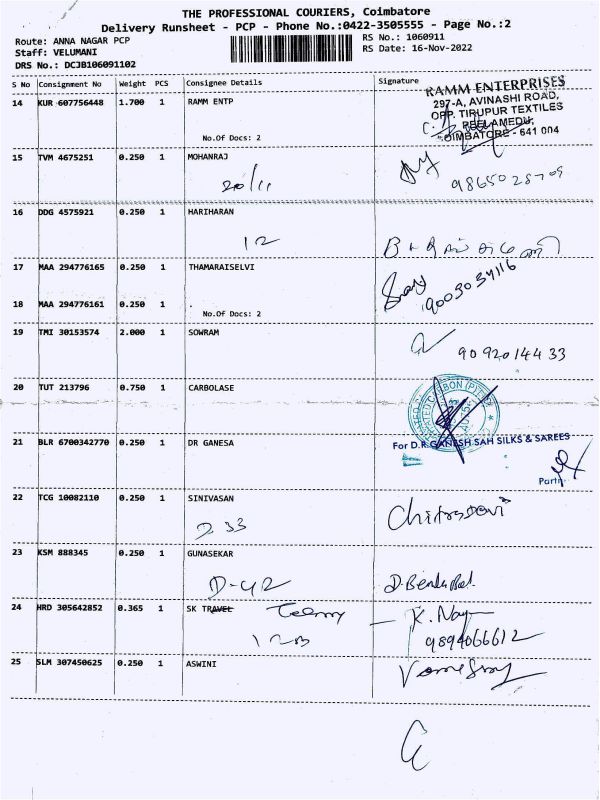 THE PROFESSIONAL COURIERS, Coimbatore
Delivery Runsheet - PCP - Phone No.:0422-3505555 - Page No.:2
Route: ANNA NAGAR PCP
Staff: VELUMANI
DRS No.: DCJB106091102
RS No.: 1060911
RS Date: 16-Nov-2022
S No Consignment No Weight PCS Consignee Details Signature
14 KUR 607756448 1.700 1 RAMM ENTP
No.Of Docs: 2
RAMM ENTERPRISES
297-A, AVINASHI ROAD,
OPP. TIRUPUR TEXTILES
PEELAMEDU,
COIMBATORE - 641 004
15 TVM 4675251 0.250 1 MOHANRAJ
20/11
16 DDG 4575921 0.250 1 HARIHARAN
12
17 MAA 294776165 0.250 1 THAMARAISELVI
9003034116
18 MAA 294776161 0.250 1
No.Of Docs: 2
19 TMI 30153574 2.000 1 SOWRAM
9092014433
20 TUT 213796 0.750 1 CARBOLASE
21 BLR 6700342770 0.250 1 DR GANESA
For D.R.GANESH SAH SILKS & SAREES
Partn
22 TCG 10082110 0.250 1 SINIVASAN
233
Chitradevi
23 KSM 888345 0.250 1 GUNASEKAR
D-42
24 HRD 305642852 0.365 1 SK TRAVEL
K. Nay
9894066612
25 SLM 307450625 0.250 1 ASWINI